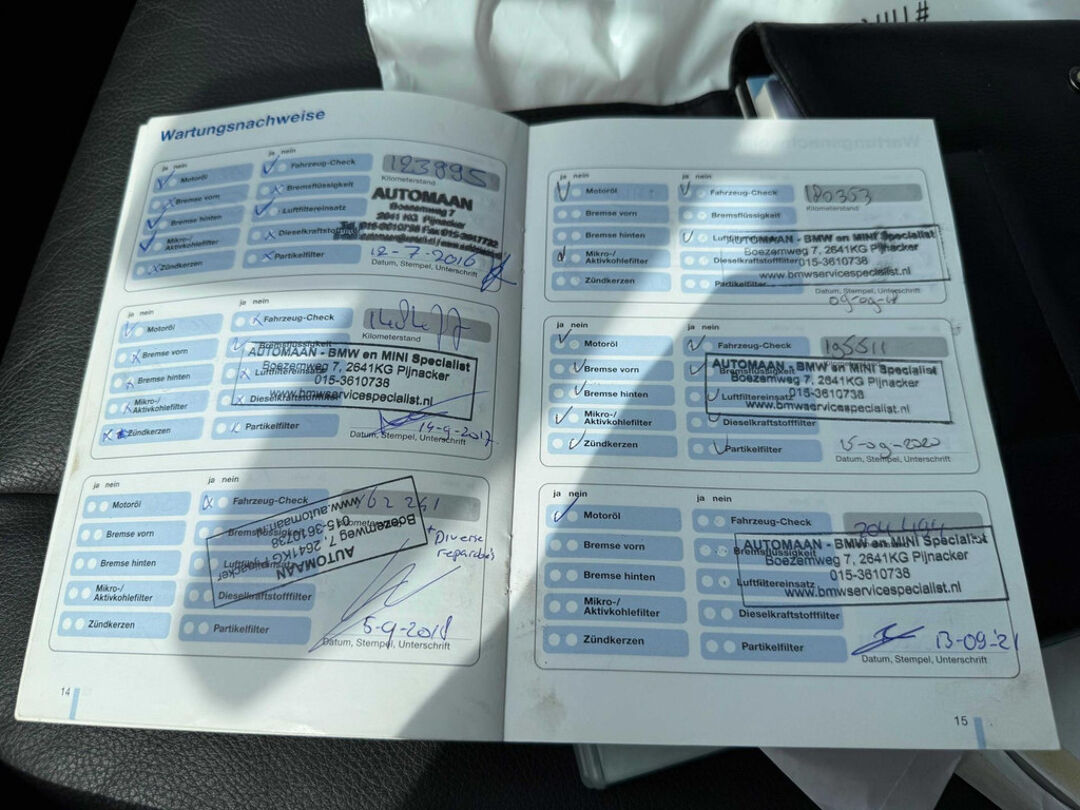 Wartungsnachweise
ja nein ja nein
Motoröl Fahrzeug-Check 123895
Kilometerstand
Bremse vorn Bremsflüssigkeit AUTOMAAN
Boezemweg 7
Bremse hinten Luftfiltereinsatz 2641 KG Pijnacker
Mikro-/
Aktivkohlefilter
Zündkerzen Partikelfilter 12-7-2016
Datum, Stempel, Unterschrift
ja nein ja nein
Motoröl Fahrzeug-Check
Kilometerstand
Bremse vorn Bremsflüssigkeit
AUTOMAAN - BMW en MINI Specialist
Boezemweg 7, 2641KG Pijnacker
Bremse hinten 015-3610738
www.bmwservicespecialist.nl
Mikro-/
Aktivkohlefilter Dieselkraftstofffilter
Zündkerzen Partikelfilter 14-9-2017
Datum, Stempel, Unterschrift
ja nein ja nein
Motoröl Fahrzeug-Check 162261
Bremse vorn Bremsflüssigkeit
+ Diverse
Bremse hinten Luftfiltereinsatz
AUTOMAAN
Boezemweg 7, 2641KG Pijnacker
015-3610738
www.automaan.nl
Mikro-/
Aktivkohlefilter Dieselkraftstofffilter
Zündkerzen Partikelfilter 5-9-2018
Datum, Stempel, Unterschrift
14
ja nein ja nein
Motoröl Fahrzeug-Check 180353
Kilometerstand
Bremse vorn Bremsflüssigkeit
Bremse hinten Luftfiltereinsatz
AUTOMAAN - BMW en MINI Specialist
Boezemweg 7, 2641KG Pijnacker
015-3610738
www.bmwservicespecialist.nl
Mikro-/
Aktivkohlefilter Dieselkraftstofffilter
Zündkerzen Partikelfilter
Datum, Stempel, Unterschrift
ja nein ja nein
Motoröl Fahrzeug-Check 195511
Bremse vorn Bremsflüssigkeit
AUTOMAAN - BMW en MINI Specialist
Boezemweg 7, 2641KG Pijnacker
015-3610738
www.bmwservicespecialist.nl
Bremse hinten Luftfiltereinsatz
Mikro-/
Aktivkohlefilter Dieselkraftstofffilter
Zündkerzen Partikelfilter 15-09-2020
Datum, Stempel, Unterschrift
ja nein ja nein
Motoröl Fahrzeug-Check 204494
Bremse vorn Bremsflüssigkeit
AUTOMAAN - BMW en MINI Specialist
Boezemweg 7, 2641KG Pijnacker
015-3610738
www.bmwservicespecialist.nl
Bremse hinten Luftfiltereinsatz
Mikro-/
Aktivkohlefilter Dieselkraftstofffilter
Zündkerzen Partikelfilter 13-09-'21
Datum, Stempel, Unterschrift
15